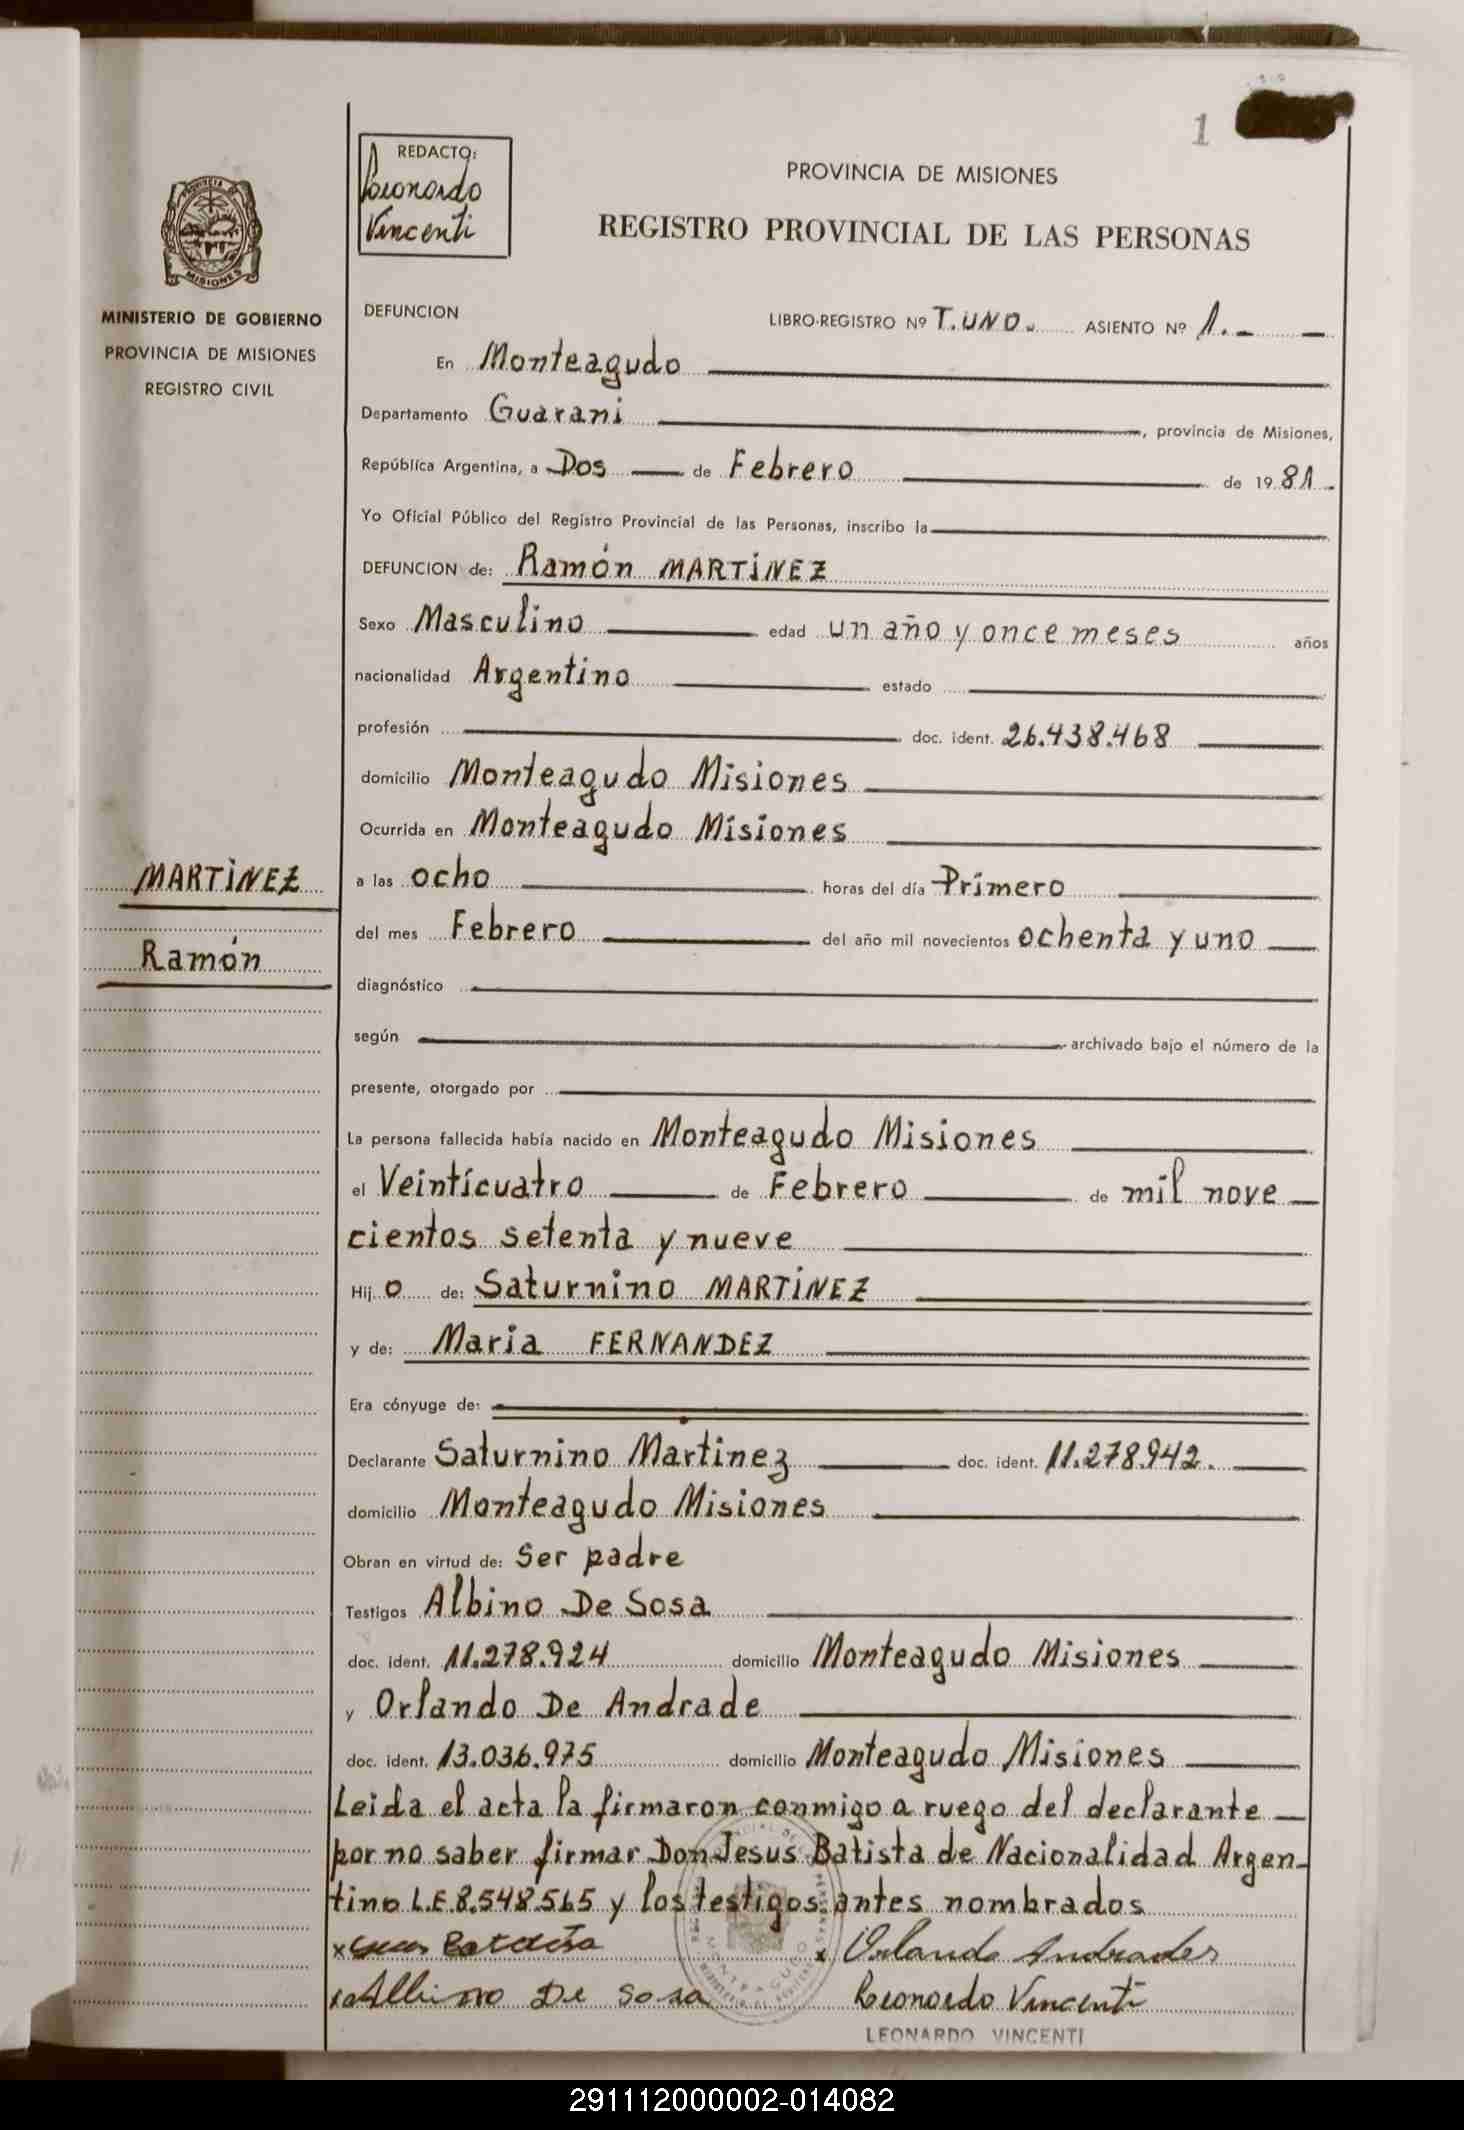 1
REDACTO:
Leonardo
Vincenti
PROVINCIA DE MISIONES
REGISTRO PROVINCIAL DE LAS PERSONAS
MINISTERIO DE GOBIERNO
PROVINCIA DE MISIONES
REGISTRO CIVIL
DEFUNCION
LIBRO-REGISTRO Nº T. UNO. ASIENTO Nº 1.-
En Monteagudo
Departamento Guarani, provincia de Misiones,
República Argentina, a Dos de Febrero de 1981.
Yo Oficial Público del Registro Provincial de las Personas, inscribo la
DEFUNCION de: Ramón MARTINEZ
Sexo Masculino edad un año y once meses años
nacionalidad Argentino estado
profesión doc. ident. 26.438.468
domicilio Monteagudo Misiones
Ocurrida en Monteagudo Misiones
MARTINEZ
a las ocho horas del día Primero
del mes Febrero del año mil novecientos ochenta y uno
Ramón
diagnóstico
según archivado bajo el número de la
presente, otorgado por
La persona fallecida había nacido en Monteagudo Misiones
el Veinticuatro de Febrero de mil nove
cientos setenta y nueve
Hijo de: Saturnino MARTINEZ
y de: Maria FERNANDEZ
Era cónyuge de:
Declarante Saturnino Martinez doc. ident. 11.278.942.
domicilio Monteagudo Misiones
Obran en virtud de: Ser padre
Testigos Albino De Sosa
doc. ident. 11.278.924 domicilio Monteagudo Misiones
y Orlando De Andrade
doc. ident. 13.036.975 domicilio Monteagudo Misiones
Leida el acta la firmaron conmigo a ruego del declarante
por no saber firmar Don Jesus Batista de Nacionalidad Argen-
tino L.E. 8.548.565 y los testigos antes nombrados
x Orlando Andrades
x Albino De Sosa
Leonardo Vincenti
LEONARDO VINCENTI
291112000002-014082